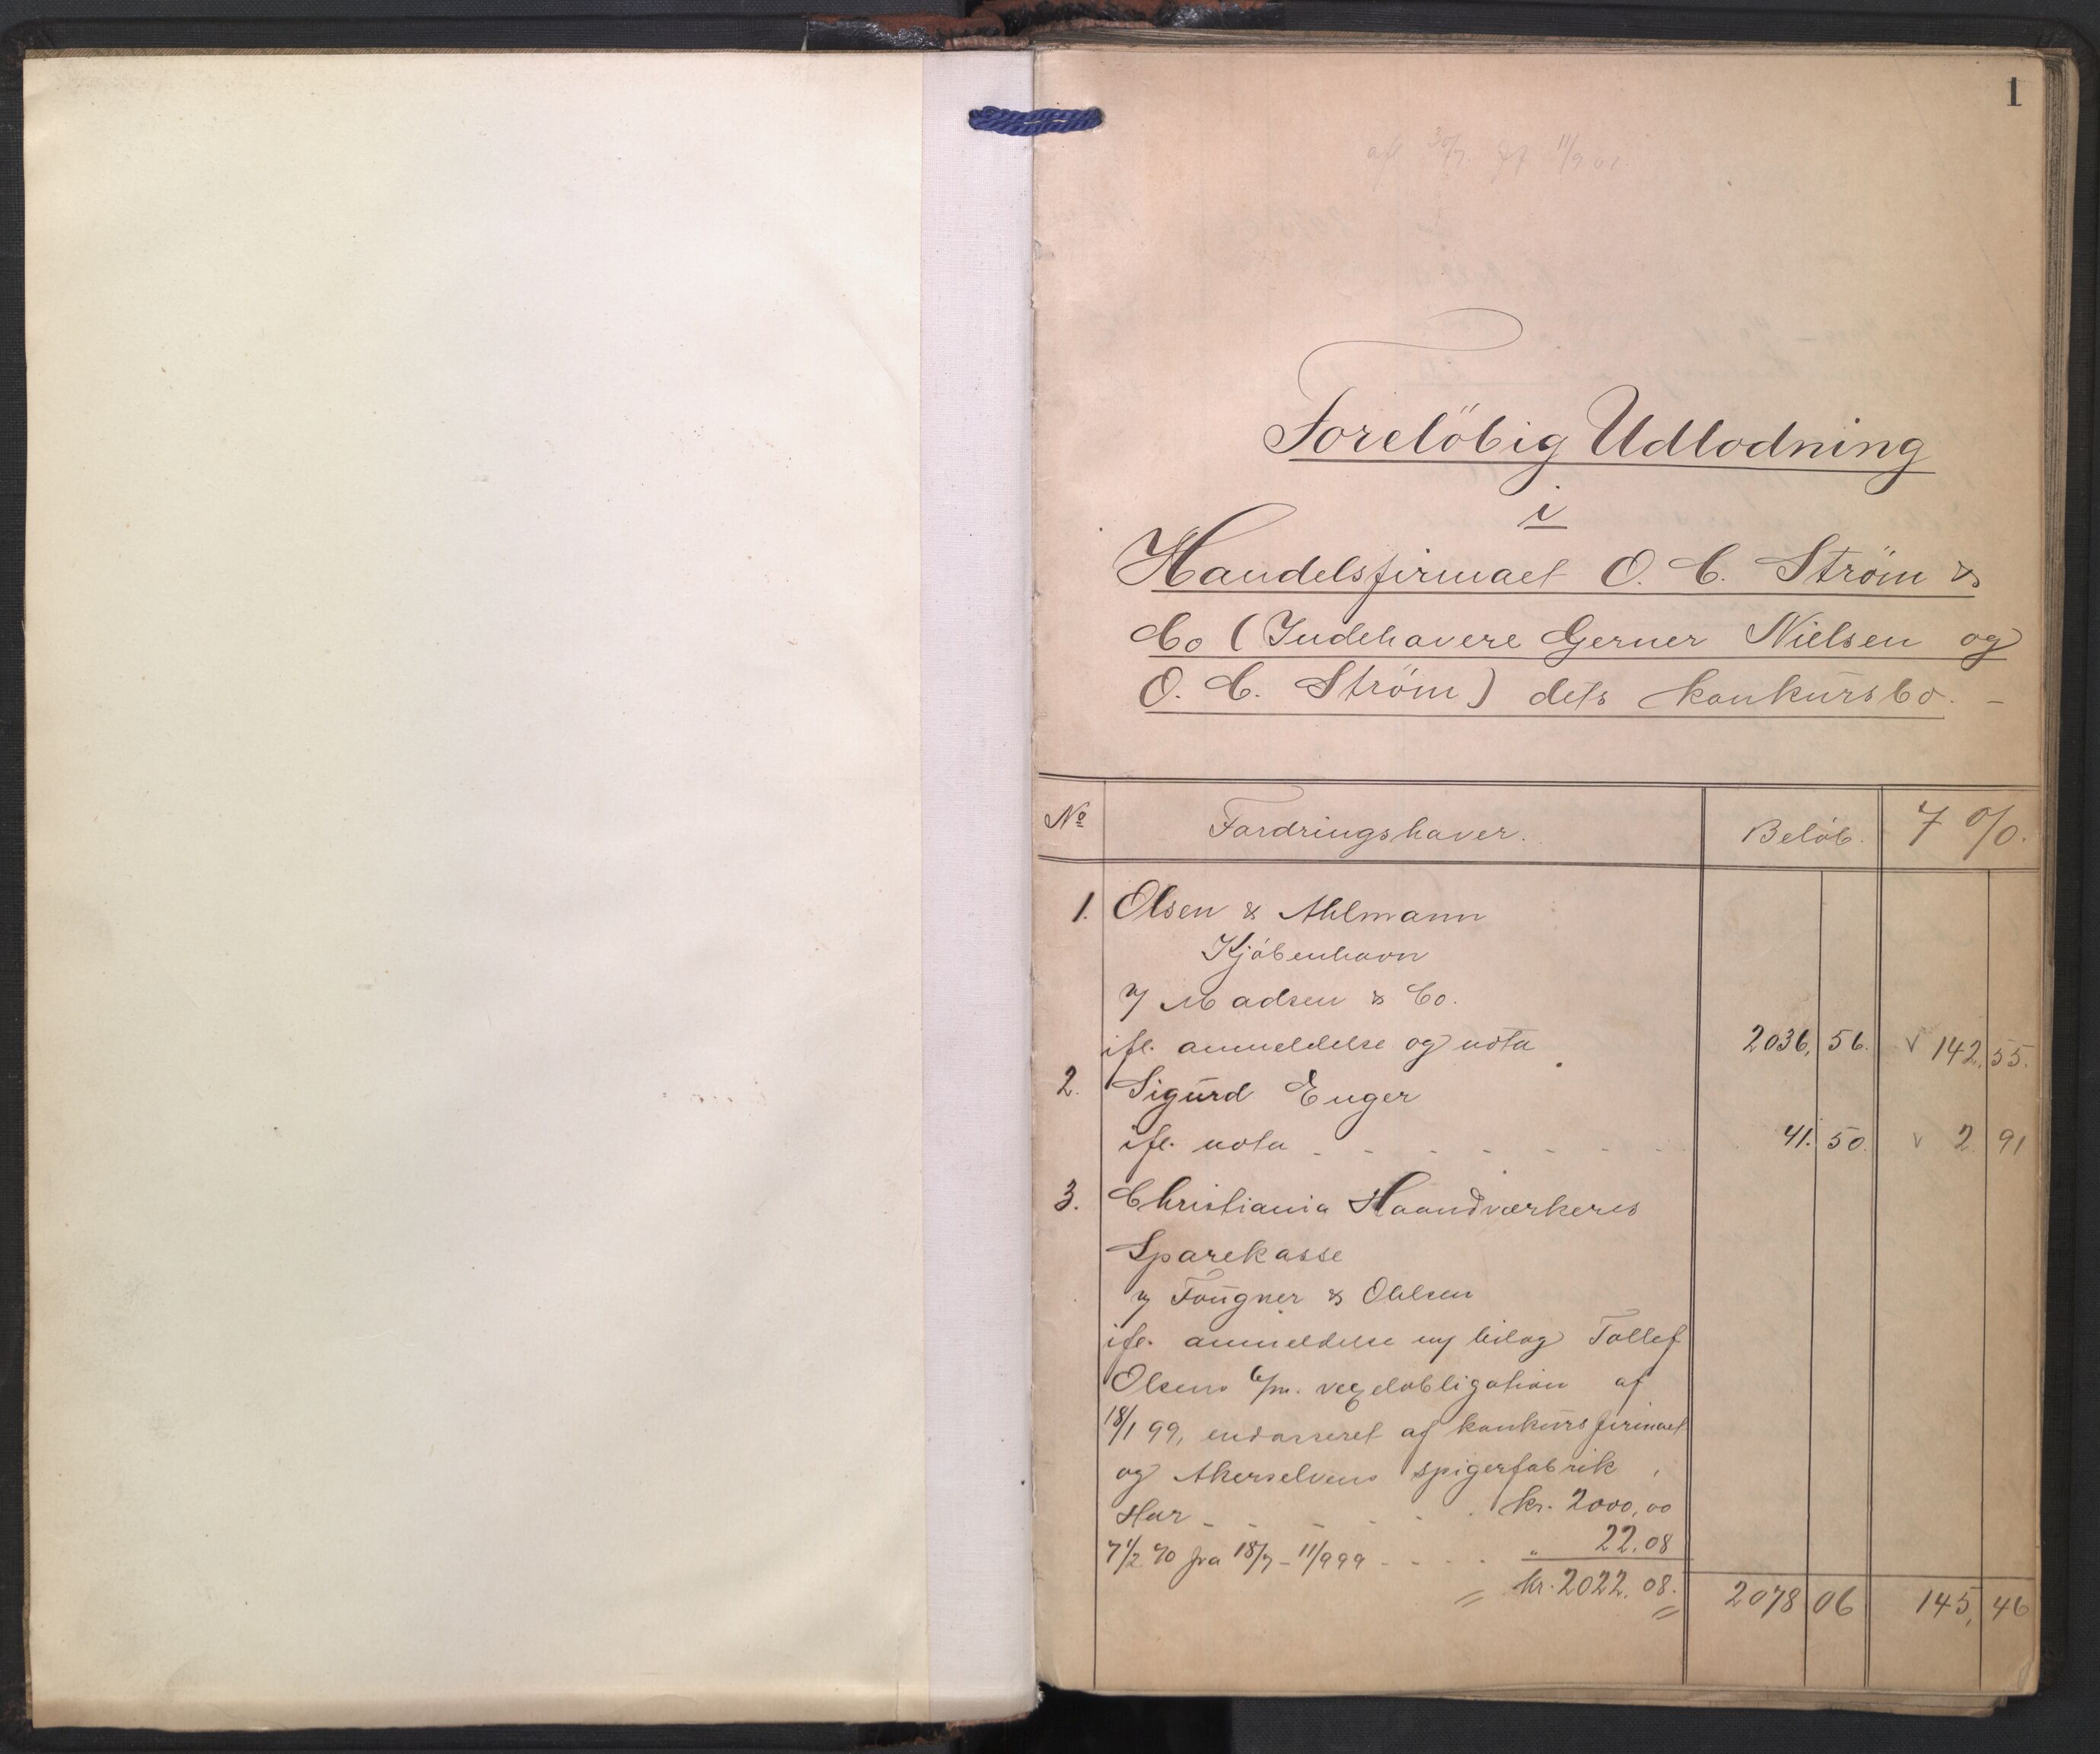 1
afl 30/7. 11/9 01.
Forelöbig Udlodning
i
Handelsfirmaet O. C. Ström &
Co (Indehavere Gerner Nielsen og
O. C. Ström) dets konkursbo. –
No Fordringshaver. Belöb. 7 %.
1. Olsen & Ahlmann
Kjöbenhavn
v/ Madsen & Co.
ifl. anmeldelse og nota 2036, 56. v 142, 55.
2. Sigurd Enger
ifl. nota - - - - - - - 41. 50. v 2 91
3. Christiania Haandværkeres
Sparekasse
v/ Fougner & Ohlsen
ifl. anmeldelse m/ bilag Tollef
Olsens 6/m. vexelobligation af
18/1 99, endosseret af konkursfirmaet
og Akerselvens spigerfabrik,
Stor - - - - - kr. 2000,00
7 1/2 % fra 18/7 - 11/9 99 - - - - „ 22.08
kr. 2022.08. 2078 06 145, 46